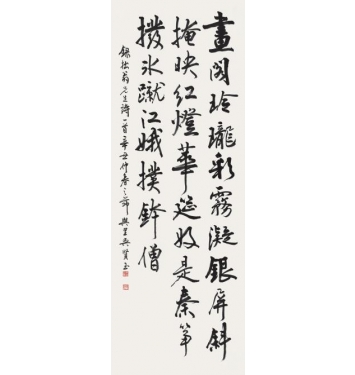 畫閣玲瓏彩霧凝銀屏斜
掩映紅燈華筵好是秦箏
撥水蹴江娥撲鈴僧
錄放翁先生詩一首辛丑仲春之節